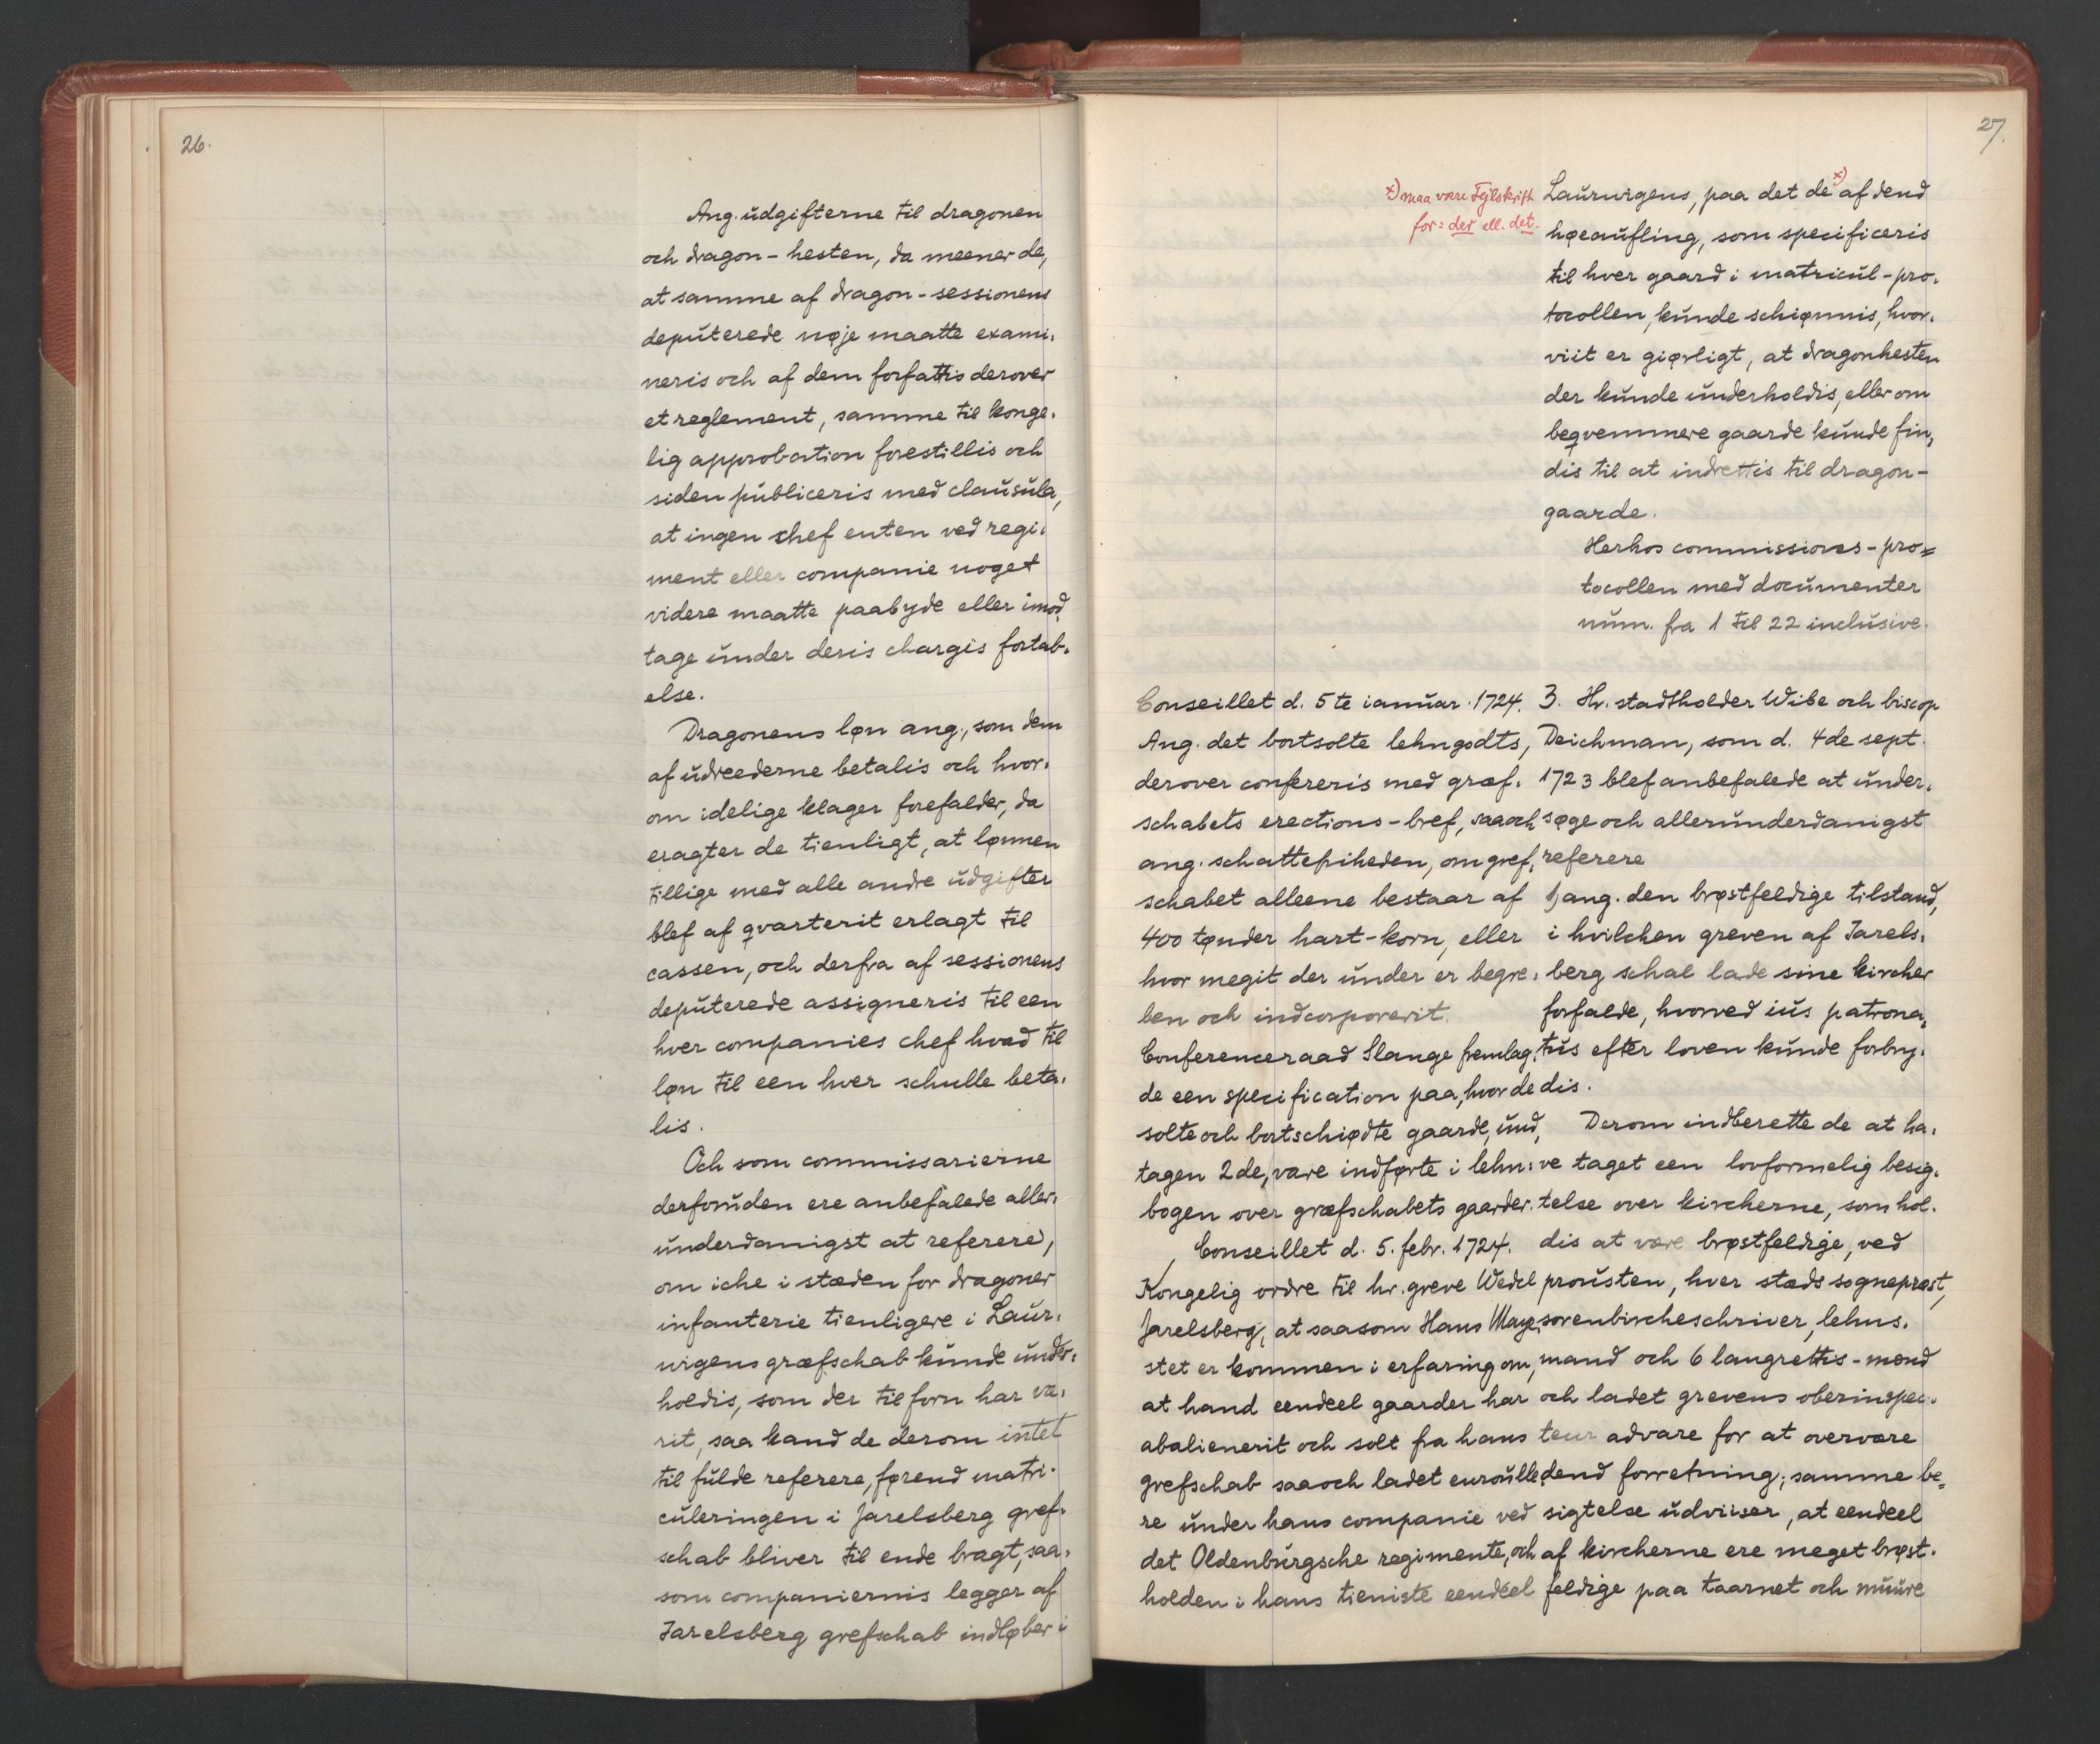 26.
Ang. udgifterne til dragonen
och dragon-hesten, da meener de,
at samme af dragon-sessionens
deputerede nøje maatte exami-
neris och af dem forfattis derover
et reglement, samme til konge-
lig approbation forestillis och
siden publiceris med clausula,
at ingen chef enten ved regi-
ment eller companie noget
videre maatte paabyde eller imod-
tage under deris chargis fortab-
else.
Dragonens løn ang., som dem
af udreederne betalis och hvor-
om idelige klager forefalder, da
eragter de tienligt, at lønnen
tillige med alle andre udgifter
blef af qvarterit erlagt til
cassen, och derfra af sessionens
deputerede assigneris til een
hver companies chef hvad til
løn til een hver schulle beta-
lis.
Och som commissarierne
derforuden ere anbefalede aller-
underdanigst at referere,
om iche i stæden for dragoner
infanterie tienligere i Laur-
wigens græfschab kunde under-
holdis, som der tilforn har væ-
rit, saa kand de derom intet
til fulde referere, førend matri-
culeringen i Jarelsberg gref-
schab bliver til ende bragt, saa-
som companiernis legger af
Jarelsberg grefschab indløber i
27.
x) maa være Fejlskrift
for: der ell. det.
Laurwigens, paa det de x) af dend
høeaufling, som specificeris
til hver gaard i matricul-pro-
tocollen, kunde schiønnis, hvor-
viit er giørligt, at dragonhesten
der kunde underholdis, eller om
beqvemmere gaarde kunde fin-
dis til at indrettis til dragon-
gaarde.
Herhos commissions-pro-
tocollen med documenter
num. fra 1 til 22 inclusive.
Conseillet d. 5te ianuar. 1724.
Ang. det bortsolte lehngodts,
derover confereris med græf-
schabets erections-bref, saa och
ang. schattefriheden, om gref-
schabet alleene bestaar af
400 tønder hart-korn, eller
hvor megit der under er begre-
ben och indcorporerit.
Conferenceraad Slange fremlag-
de een specification paa, hvor de
solte och bortschiødte gaarde, und-
tagen 2de, vare indførte i lehn-
bogen over græfschabets gaarder.
Conseillet d. 5. febr. 1724.
Kongelig ordre til hr. greve Wedel
Jarelsberg, at saasom Hans May-
stet er kommen i erfaring om,
at hand eendeel gaarder har
abalienerit och solt fra hans
grefschab saa och ladet enroulle-
re under hans companie ved
det Oldenburgsche regimente, och
holden i hans tieniste eendeel
3. Hr. stadtholder Wibe och biscop
Deichman, som d. 4de sept.
1723 blef anbefalede at under-
søge och allerunderdanigst
referere
1) ang. den brøstfeldige tilstand,
i hvilchen greven af Jarels-
berg schal lade sine kircher
forfalde, hvorved ius patrona-
tus efter loven kunde forbry-
dis.
Derom indberette de at ha-
ve taget een lovformelig besig-
telse over kircherne, som hol-
dis at være brøstfeldige, ved
prousten, hver stæds sogneprest,
sorenbircheschriver, lehns-
mand och 6 laugrettis-mænd
och ladet grevens oberinspec-
teur advare for at overvære
dend forretning; samme be-
sigtelse udviiser, at eendeel
af kircherne ere meget brøst-
feldige paa taarnet och muure